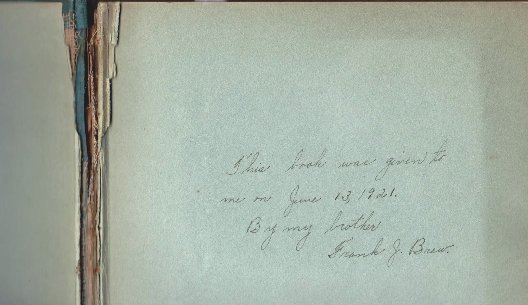 This book was given to
me on June 13, 1921.
By my brother
Frank J.